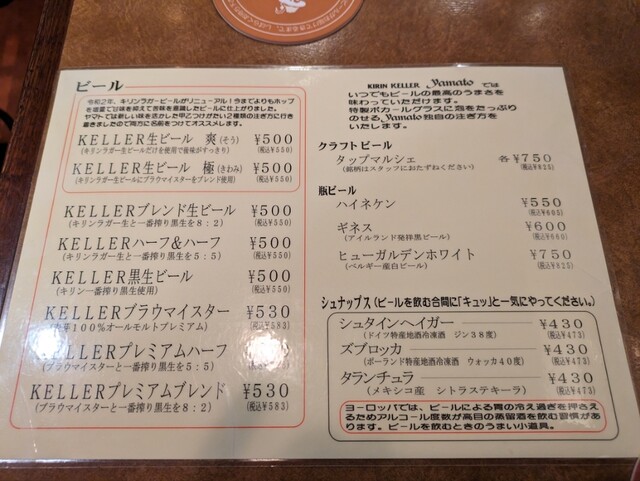 ビール
令和2年、キリンラガービールがリニューアル!今までよりもホップ
を増量で甘味を抑えて苦味を意識したビールに仕上がりました。
ヤマトでは新しい味を活かした甲乙つけがたい2種類の注ぎ方に行き
着きましたので両方に名前をつけてオススメします。
KELLER生ビール 爽(そう) ¥500
(キリンラガー生ビールだけを使用で後味がすっきり) (税込¥550)
KELLER生ビール 極(きわみ) ¥500
(キリンラガー生ビールにブラウマイスターをブレンド使用) (税込¥550)
KELLERブレンド生ビール ¥500
(キリンラガー生と一番搾り黒生を8:2) (税込¥550)
KELLERハーフ&ハーフ ¥500
(キリンラガー生と一番搾り黒生を5:5) (税込¥550)
KELLER黒生ビール ¥500
(キリン一番搾り黒生使用) (税込¥550)
KELLERブラウマイスター ¥530
100%オールモルトプレミアム) (税込¥583)
KELLERプレミアムハーフ ¥530
(ブラウマイスターと一番搾り黒生を5:5) (税込¥583)
KELLERプレミアムブレンド ¥530
(ブラウマイスターと一番搾り黒生を8:2) (税込¥583)
KIRIN KELLER Yamato では
いつでもビールの最高のうまさを
味わっていただけます。
特製ポカールグラスに泡をたっぷり
のせるYamato独自の注ぎ方を
いたします。
クラフトビール
タップマルシェ 各¥750
(銘柄はスタッフにおたずねください) (税込¥825)
瓶ビール
ハイネケン ¥550
(税込¥605)
ギネス ¥600
(アイルランド発祥黒ビール) (税込¥660)
ヒューガルデンホワイト ¥750
(ベルギー産白ビール) (税込¥825)
シュナップス(ビールを飲む合間に「キュッ」と一気にやってください。)
シュタインヘイガー ¥430
(ドイツ特産地酒冷凍酒 ジン38度) (税込¥473)
ズブロッカ ¥430
(ポーランド特産地酒冷凍酒 ウォッカ40度) (税込¥473)
タランチュラ ¥430
(メキシコ産 シトラステキーラ) (税込¥473)
ヨーロッパでは、ビールによる胃の冷え過ぎを押さえ
るためアルコール度数が高目の蒸留酒を飲む習慣があ
ります。ビールを飲むときのうまい小道具。